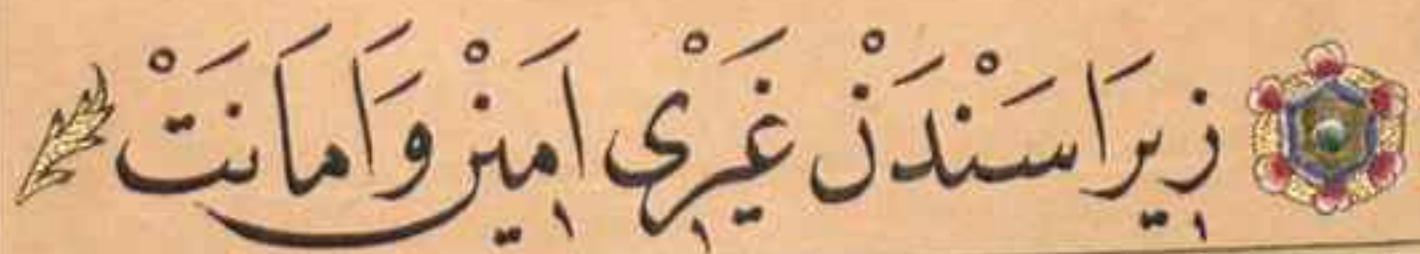 زِيرَا سَنْدَنْ غَيْرِى اَمِينْ وَاَمَانَتْ